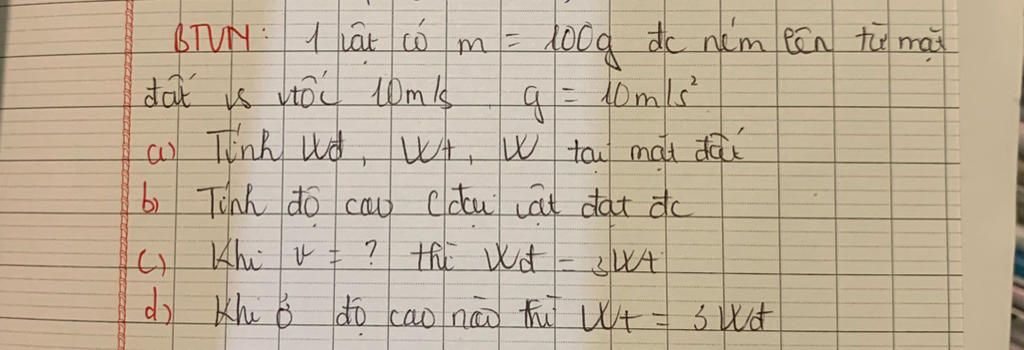 BTVN: 1 vật có m = 100g đc ném lên từ mặt
đất vs vtốc 10m/s g = 10m/s²
a) Tính Wđ, Wt, W tại mặt đất
b) Tính độ cao cđại vật đạt đc
c) Khi v = ? thì Wđ = 3Wt
d) Khi ở độ cao nào thì Wt = 3Wđ